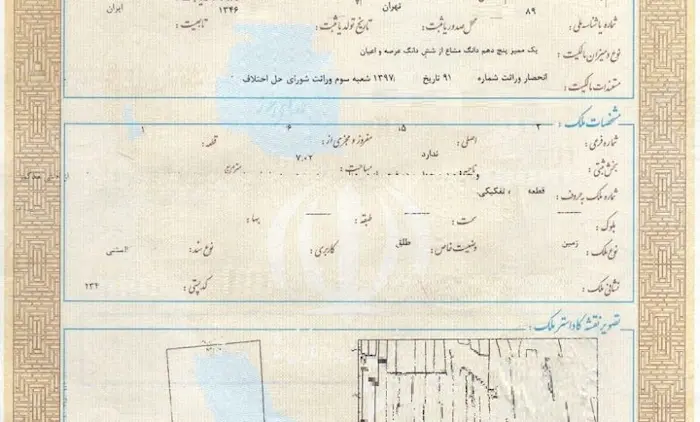 ۸۹ تهران ۱۳۴۶ ایران
شماره یا شناسه ملی : محل صدور یا ثبت : تاریخ تولد یا ثبت : تابعیت :
نوع و میزان مالکیت : یک ممیز پنج دهم دانگ مشاع از شش دانگ عرصه و اعیان
مستندات مالکیت : انحصار وراثت شماره ۹۱ تاریخ ۱۳۹۷/ شعبه سوم وراثت شورای حل اختلاف
مشخصات ملک :
شماره فرعی : ۲ اصلی : ۵، مفروز و مجزی از : ۶ قطعه : ۱
بخش ثبتی : ندارد مساحت : ۷.۰۲ مترمربع
شماره ملک به حروف : قطعه تفکیکی
بلوک : سمت : طبقه : بها :
نوع ملک : زمین وضعیت خاص : طلق کاربری : نوع سند :
نشانی ملک : کد پستی : ۲۳۴
تصویر نقشه کاداستر ملک :